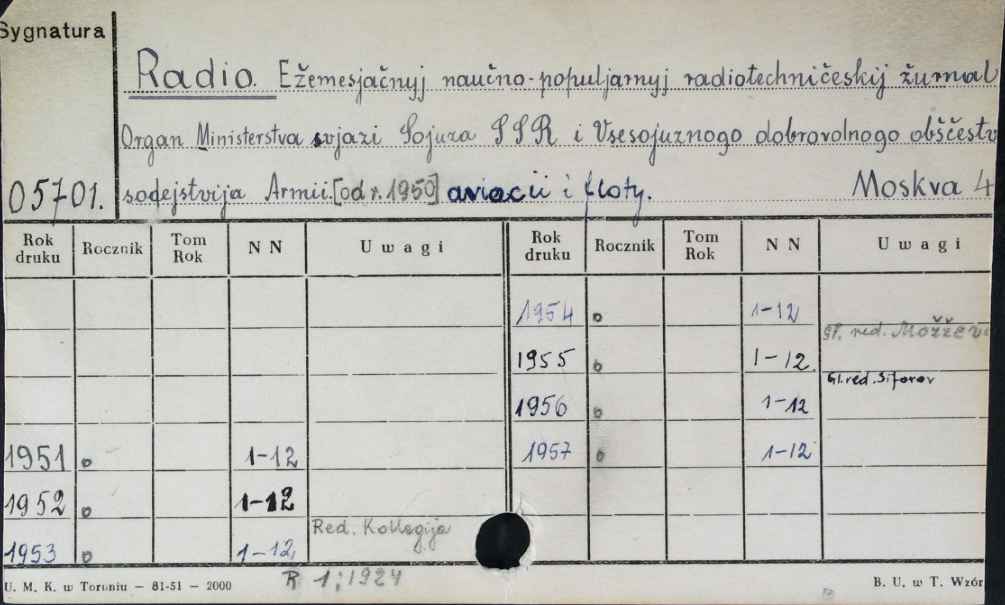 Sygnatura
Radio. Ežemesjačnyj naučno-populjarnyj radiotechničeskij žurnal
Organ Ministerstva svjazi Sojuza SSR i Vsesojuznogo dobrovolnogo obščestv
05701. sodejstvija Armii.[od r. 1950] aviacii i floty. Moskva 4
Rok druku Rocznik Tom Rok N N Uwagi Rok druku Rocznik Tom Rok N N Uwagi
1954 o 1-12
Gł. red.
1955 o 1-12.
Gł. red. Siforov
1956 o 1-12
1951 o 1-12 1957 o 1-12
1952 o 1-12
Red. Kollegija
1953 o 1-12
R 1:1924
U. M. K. w Toruniu — 81-51 — 2000 B. U. w T. Wzór